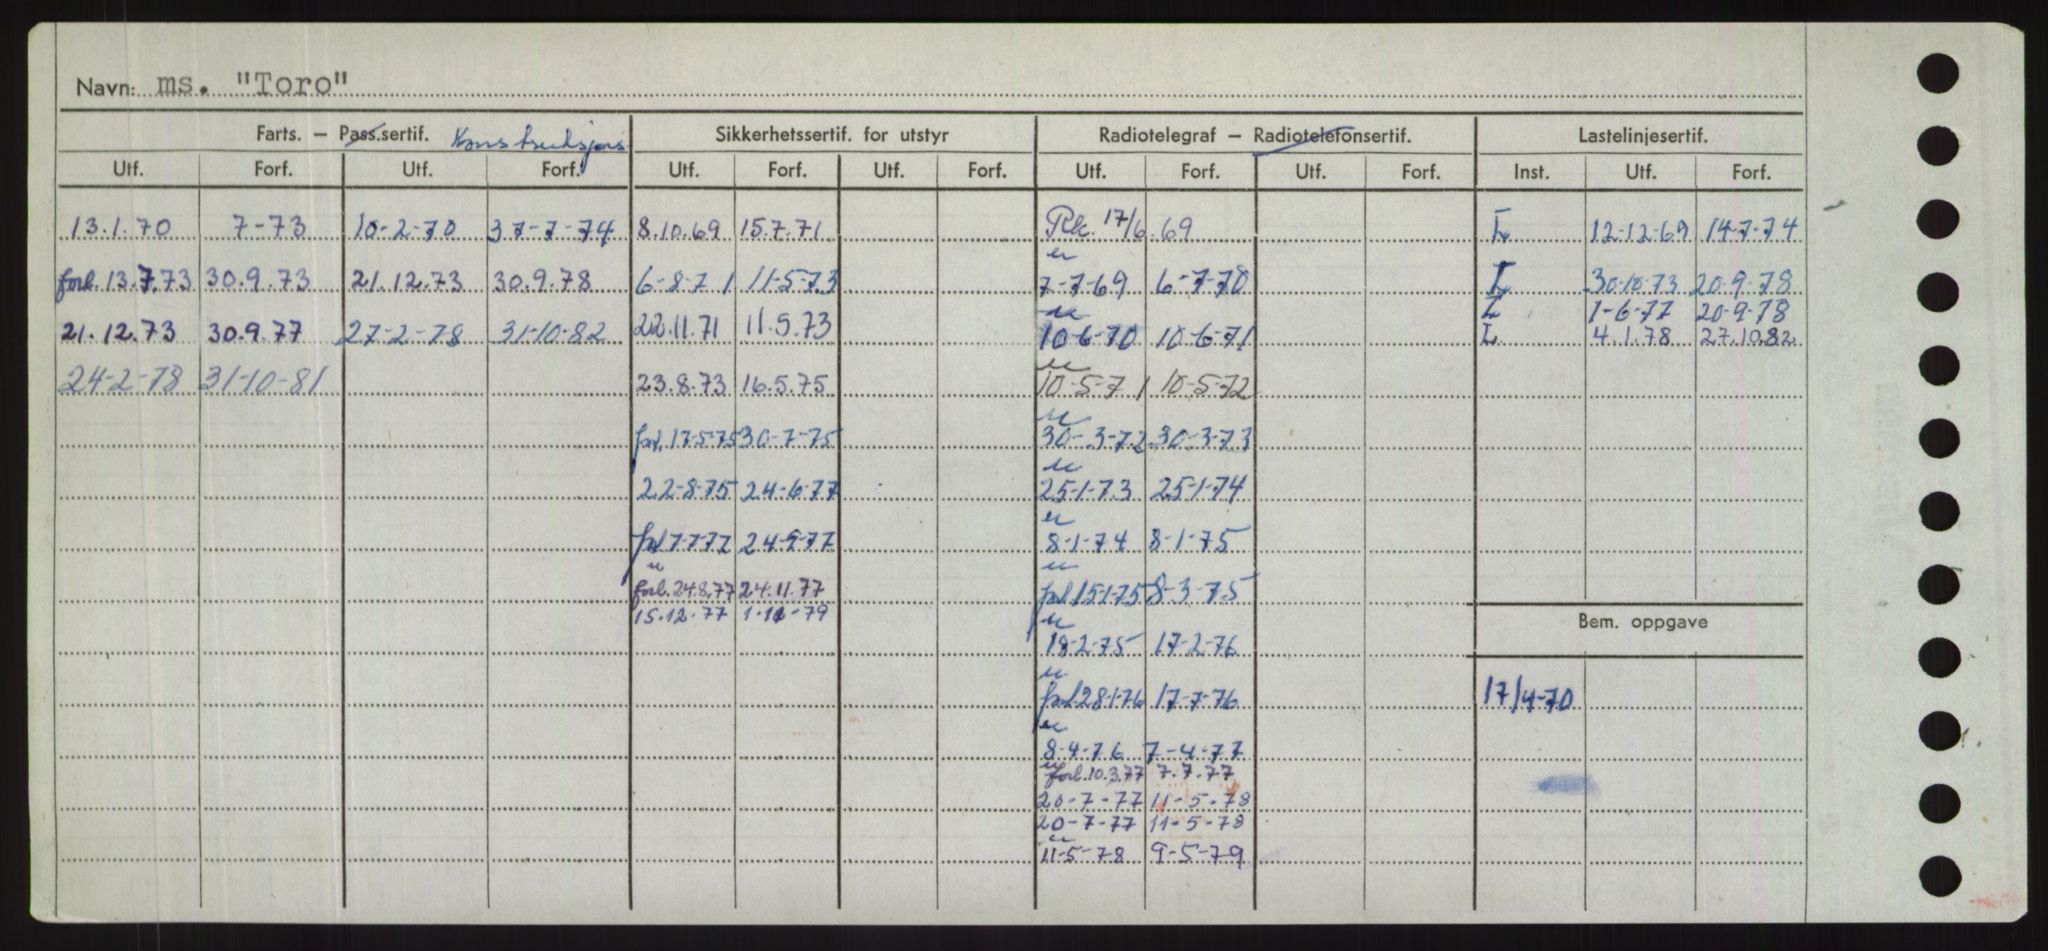 Navn: ms. "Toro"
Farts. – Pass.sertif. Konstruksjons Sikkerhetssertif. for utstyr Radiotelegraf – Radiotelefonsertif. Lastelinjesertif.
Utf. Forf. Utf. Forf. Utf. Forf. Utf. Forf. Utf. Forf. Utf. Forf. Inst. Utf. Forf.
13.1.70 7-73 10-2-70 37-7-74 8.10.69 15.7.71 17/6.69 L 12-12-69 14-7-74
forl. 13.7.73 30.9.73 21.12.73 30.9.78 6-8-71 11-5-73 7-7-69 6-7-70 L 30-10-73 20-9-78
L 1-6-77 20-9-78
21.12.73 30.9.77 27-2-78 31-10-82 22.11.71 11.5.73 10-6-70 10-6-71 L 4.1.78 27.10.82
24-2-78 31-10-81 23.8.73 16.5.75 10-5-71 10-5-72
forl. 17-5-75 30-7-75 30-3-72 30-3-73
22-8-75 24-6-77 25-1-73 25-1-74
forl 7-7-77 24-9-77 8-1-74 8-1-75
forl. 24.8.77 24.11.77 forl 15-1-75 8-3-75
15.12.77 1-11-79
Bem. oppgave
18-2-75 17-2-76
forl 28-1-76 17-7-76 17/4-70
8-4-76 7-4-77
forl. 10.3.77 7.7.77
20-7-77 11-5-78
20-7-77 11-5-78
11-5-78 9-5-79